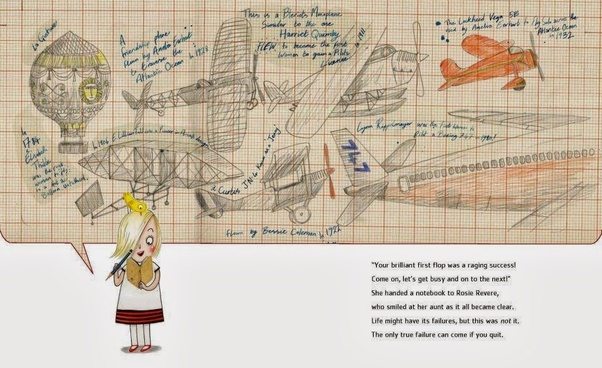 La Gustave
A
Friendship plane
flown by
to
Atlantic Ocean in 1928
This is a Bleriot Monoplane
Similar to the one
Harriet Quimby
FLEW to become the first
Woman to gain a Pilots
Licence in 1911
The Lockheed Vega 5B
used by Amelia Earhart to fly Solo across the
Atlantic Ocean
in 1932
in
1784
Elisabeth
Thible
was the first
woman to fly
in a
1906 E. Lilian Todd
design
Curtiss JN-4
Flown by Bessie Coleman in
747
Lynn Rippelmeyer was the first woman to
Pilot a Boeing 747
"Your brilliant first flop was a raging success!
Come on, let's get busy and on to the next!"
She handed a notebook to Rosie Revere,
who smiled at her aunt as it all became clear.
Life might have its failures, but this was not it.
The only true failure can come if you quit.